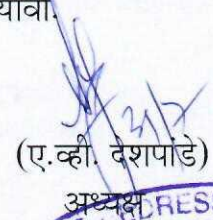 यावा.
(ए.व्ही. देशपांडे)
अध्यक्ष
DRES